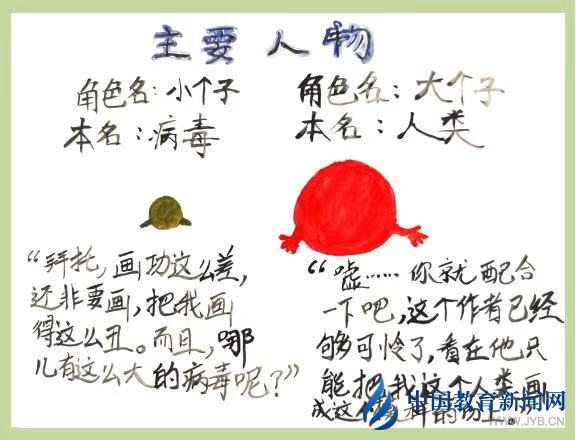 主要人物
角色名：小个子
本名：病毒
角色名：大个子
本名：人类
“拜托，画功这么差，
还非要画，把我画
得这么丑。而且，哪
儿有这么大的病毒呢？”
“嘘……你就配合
一下吧，这个作者已经
够可怜了，看在他只
能把我这个人类画
成这
中国教育新闻网
WWW.JYB.CN